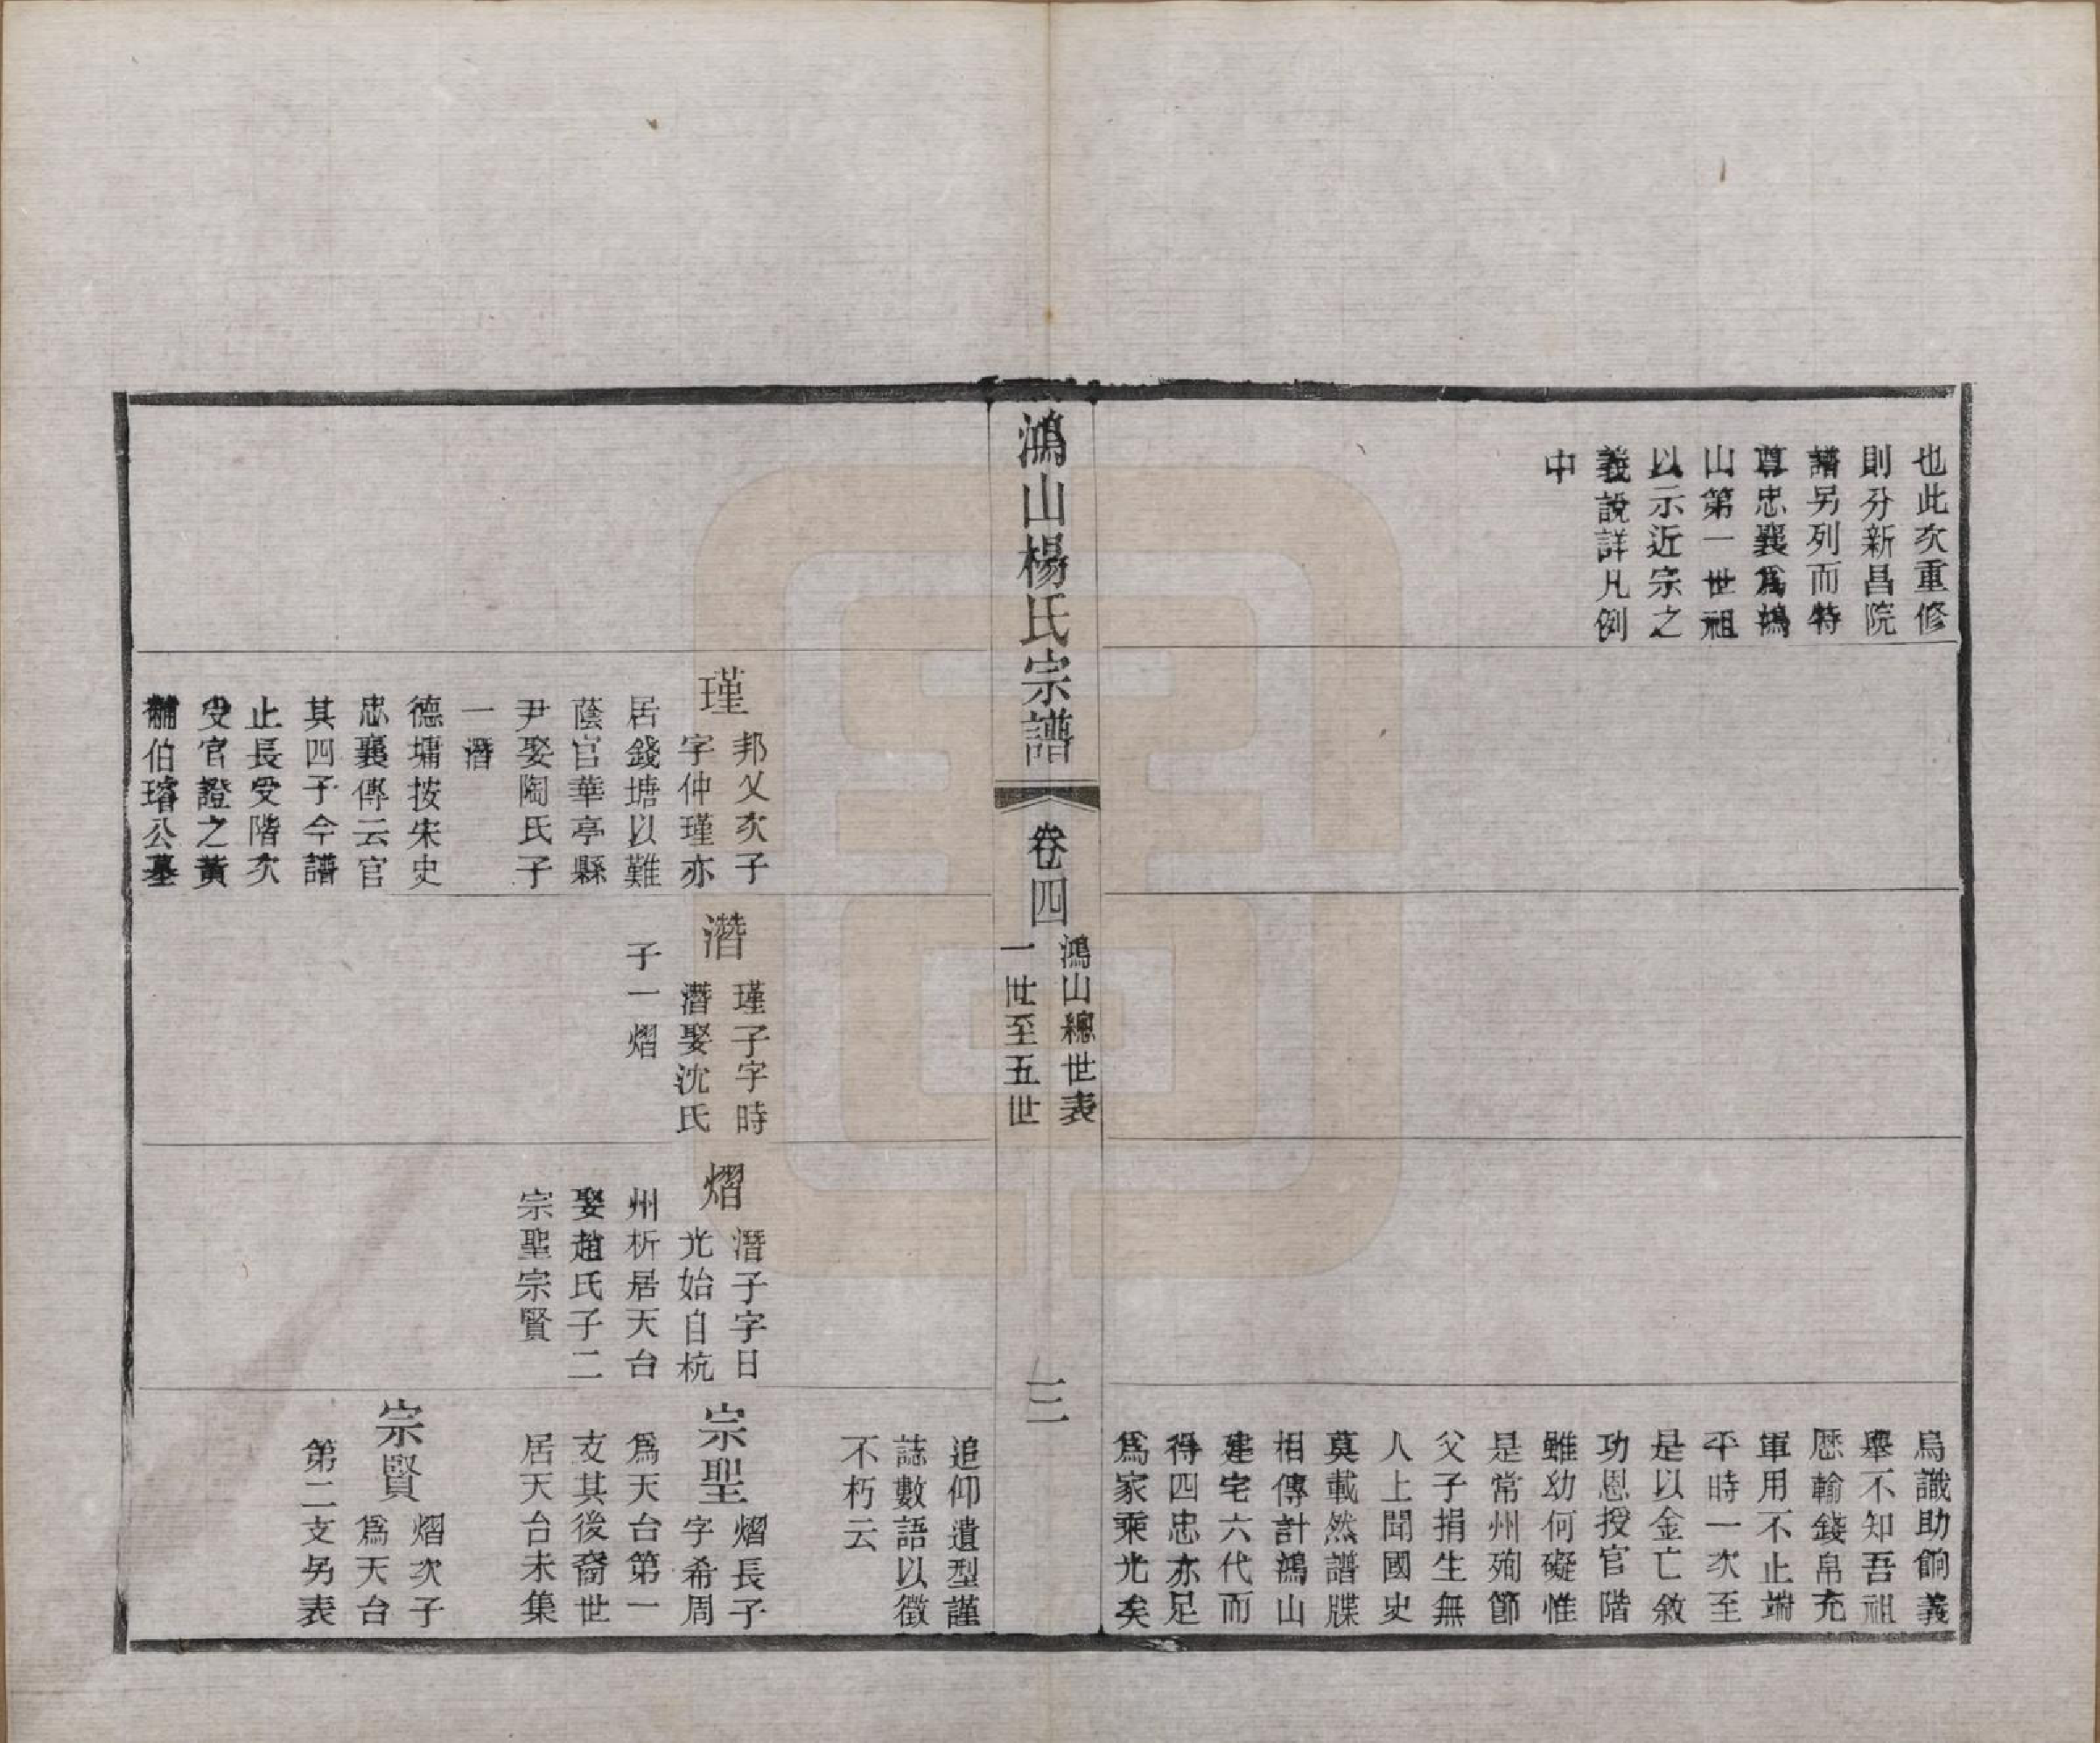 也此次重修
則分新昌院
譜另列而特
尊忠襄爲鴻
山第一世祖
以示近宗之
義說詳凡例
中
烏識助餉義
舉不知吾祖
歷輸錢帛充
軍用不止端
平時一次至
是以金亡敘
功恩授官階
雖幼何礙惟
是常州殉節
父子捐生無
人上聞國史
莫載然譜牒
相傳計鴻山
建宅六代而
得四忠亦足
爲家乘光矣
鴻山楊氏宗譜
卷四
鴻山總世表
一世至五世
三
瑾
邦乂次子
字仲瑾亦
居錢塘以難
蔭官華亭縣
尹娶陶氏子
一潛
德墉按宋史
忠襄傳云官
其四子今譜
止長受階次
受官證之黃
黼伯瑃公墓
潛
瑾子字時
潛娶沈氏
子一熠
熠
潛子字日
光始自杭
州析居天台
娶趙氏子二
宗聖宗賢
追仰遺型謹
誌數語以徵
不朽云
宗聖
熠長子
字希周
爲天台第一
支其後裔世
居天台未集
宗賢
熠次子
爲天台
第二支另表